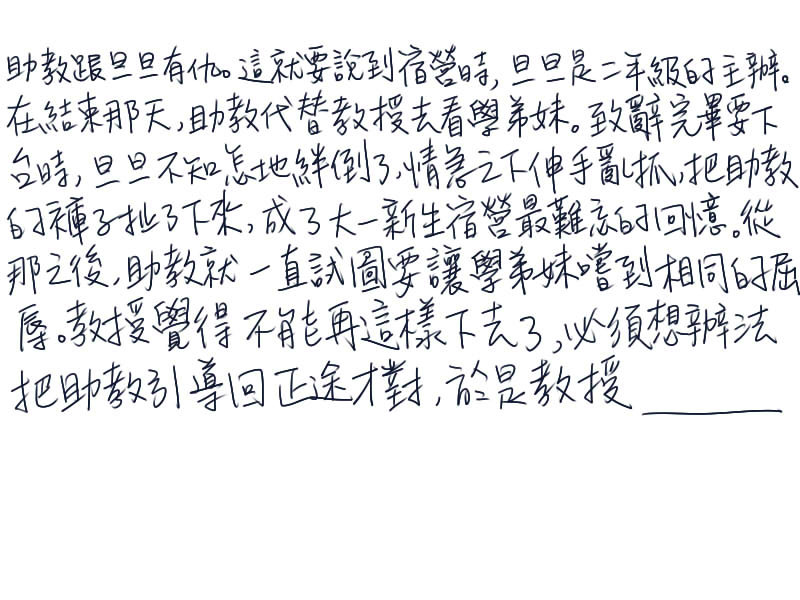 助教跟旦旦有仇。這就要說到宿營時，旦旦是二年級的主辦。
在結束那天，助教代替教授去看學弟妹。致辭完畢要下
台時，旦旦不知怎地絆倒了，情急之下伸手亂抓，把助教
的褲子扯了下來，成了大一新生宿營最難忘的回憶。從
那之後，助教就一直試圖要讓學弟妹嚐到相同的屈
辱。教授覺得不能再這樣下去了，必須想辦法
把助教引導回正途才對，於是教授______